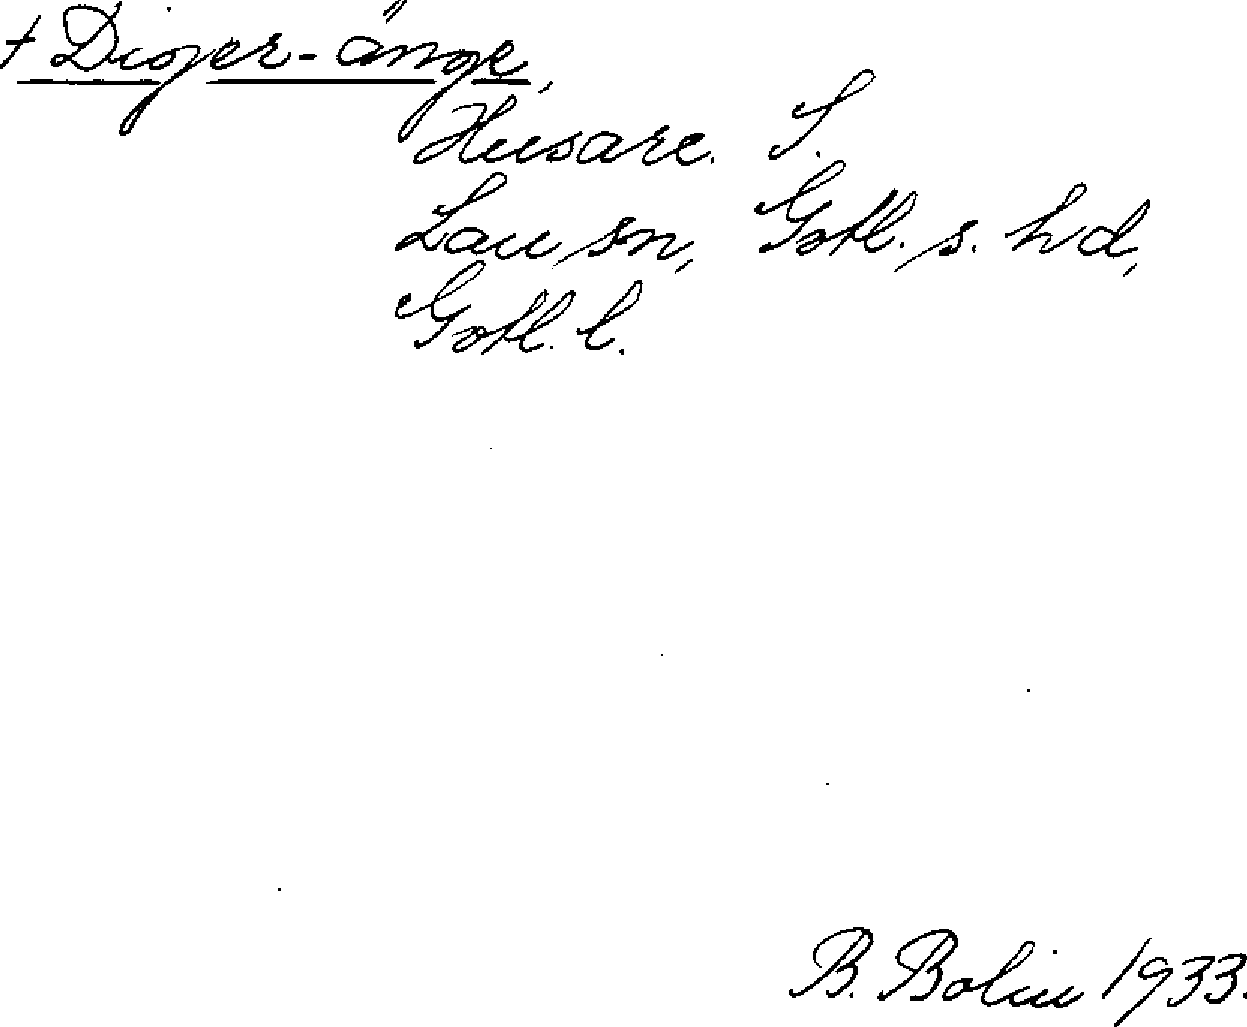 † Diger-änge,
Husare. S.
Lau sn, Gotl. s. hd,
Gotl. l.
B. Bolin 1933.